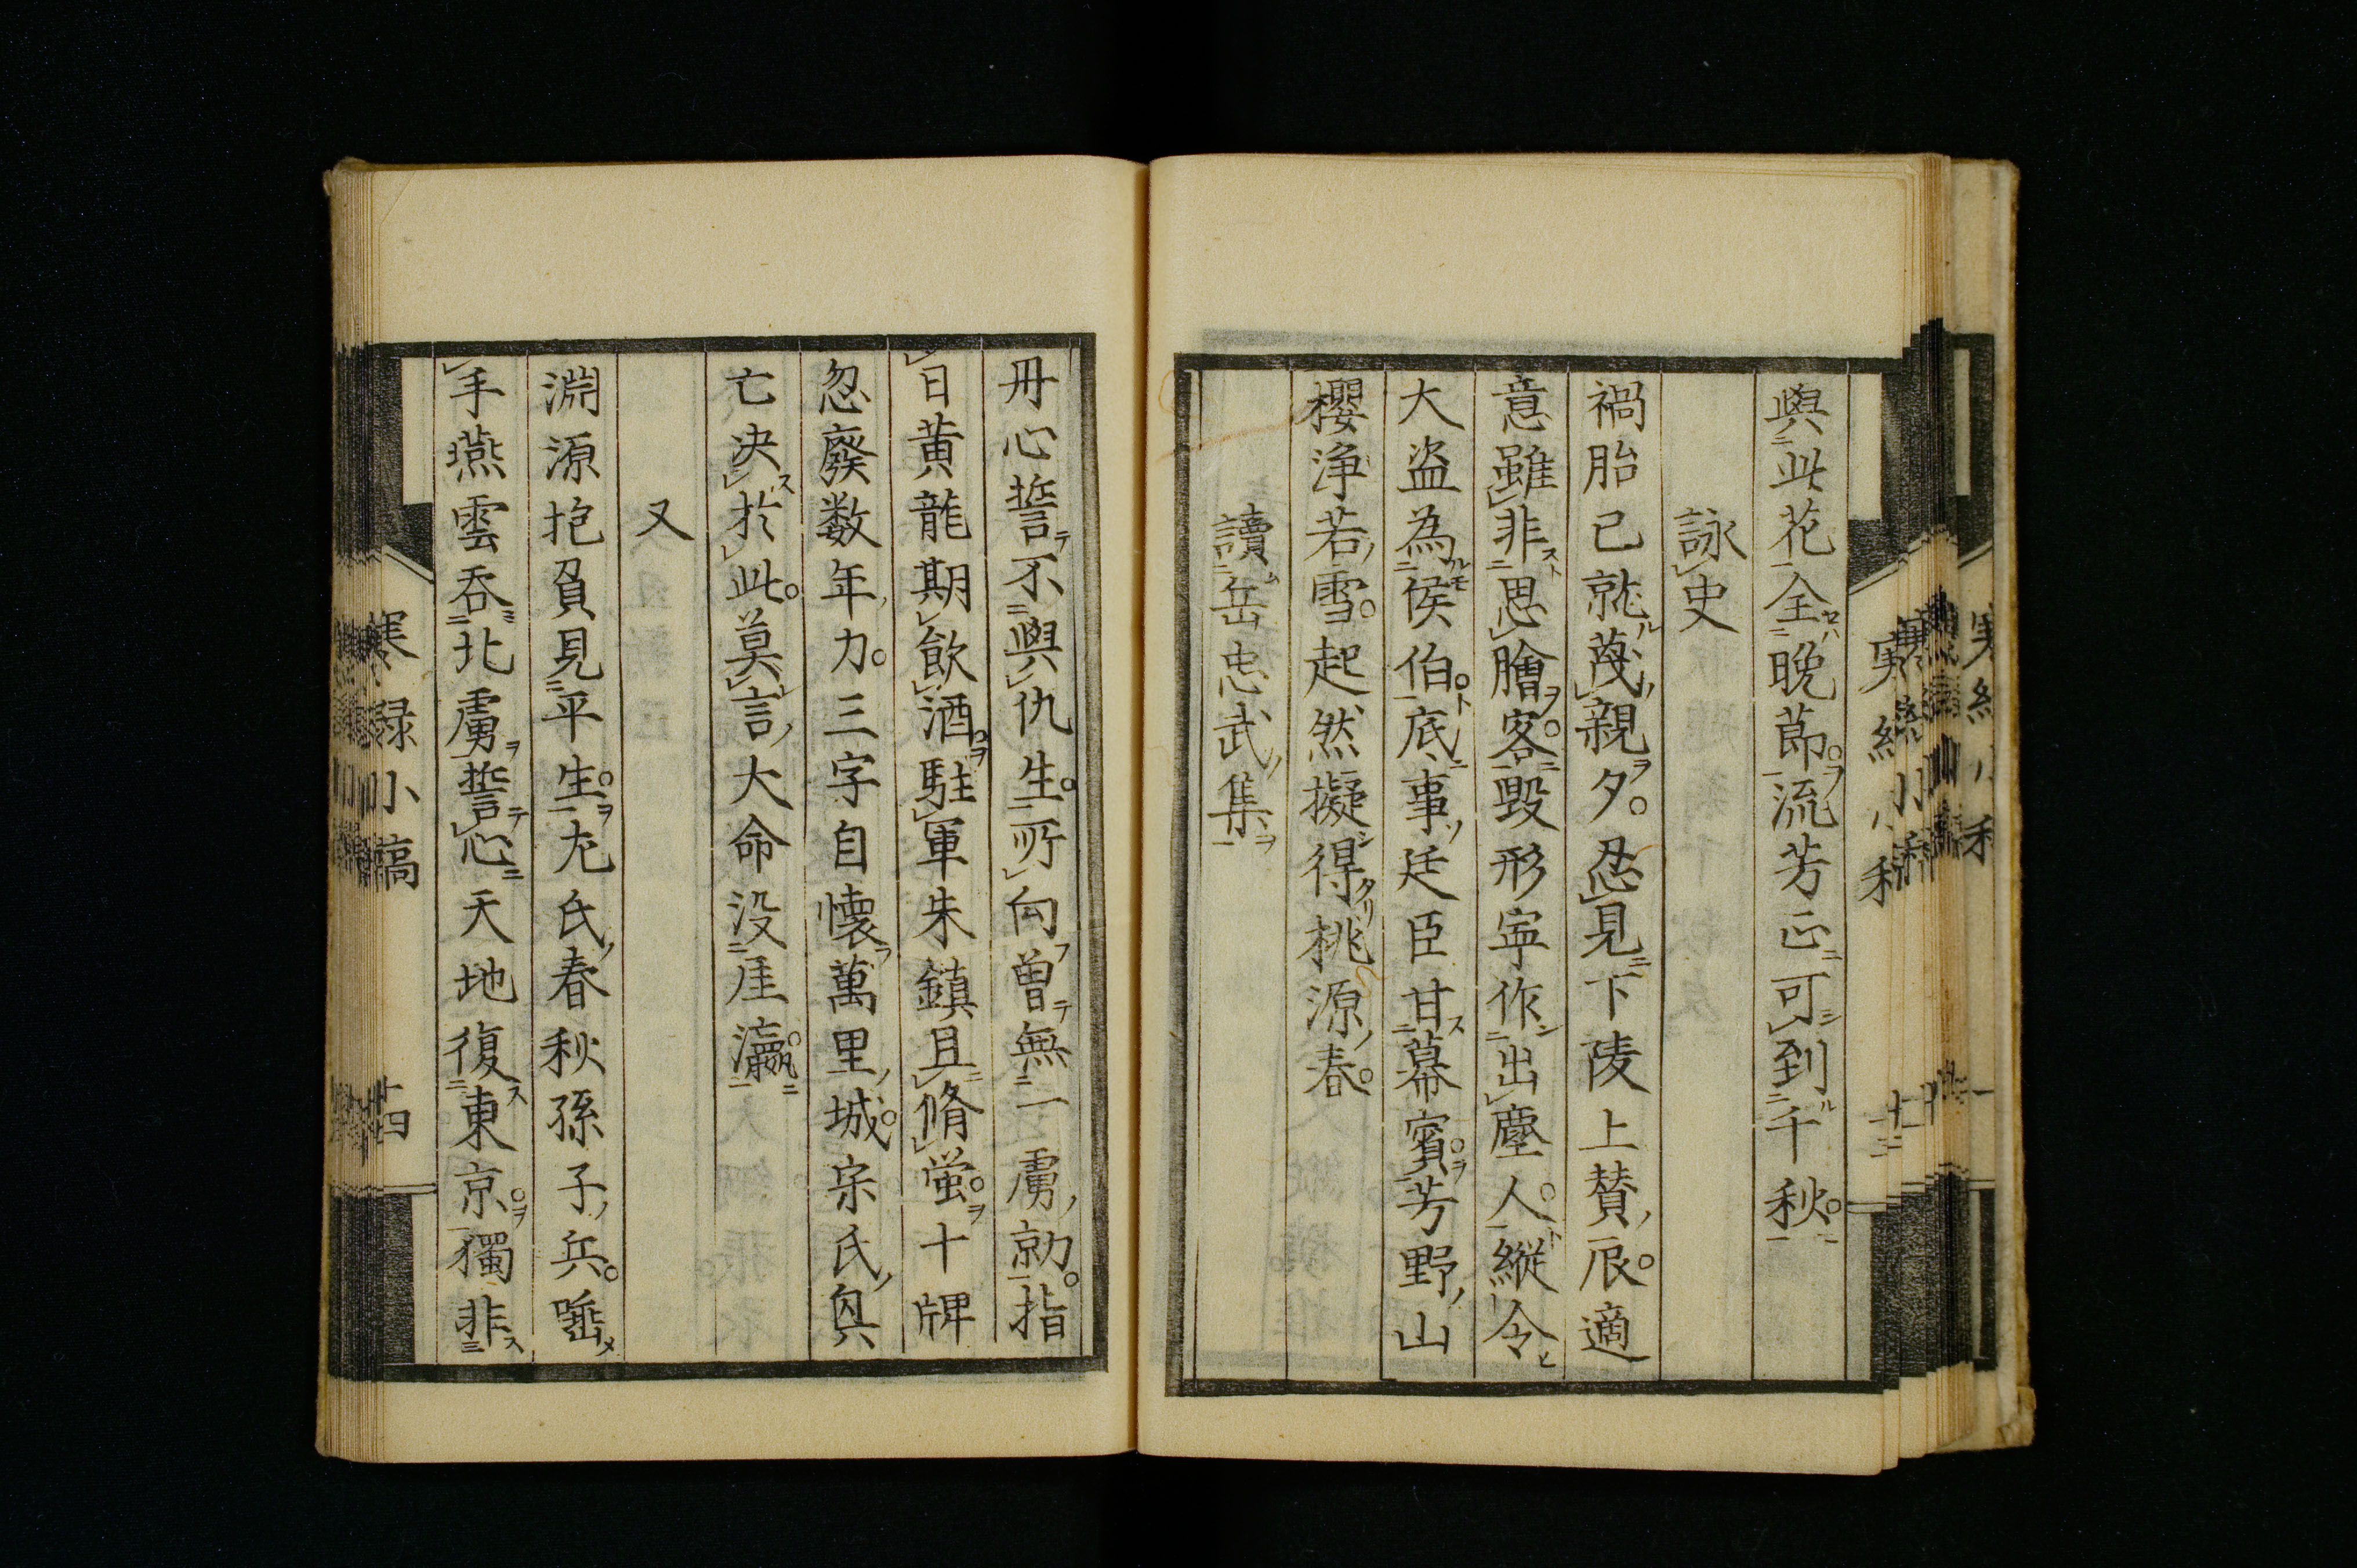 與此花全晩節。流芳正可到千秋。
詠史
禍胎已就蔑親夕。忍見下陵上賛辰。適
意雖非思膾客。毀形寧作出塵人。縦令
大盗為侯伯。底事廷臣甘幕賓。芳野山
櫻浄若雪。起然擬得桃源春。
讀岳忠武集
丹心誓不與仇生。所向曽無一虜勍。指
日黄龍期飲酒。駐軍朱鎮且脩蛍。十牌
忽廢数年力。三字自懐萬里城。宗氏奥
亡决於此。莫言大命没厓瀛。
又
淵源抱負見平生。左氏春秋孫子兵。唾
手燕雲呑北虜。誓心天地復東京。獨非
寒緑小稿
十四